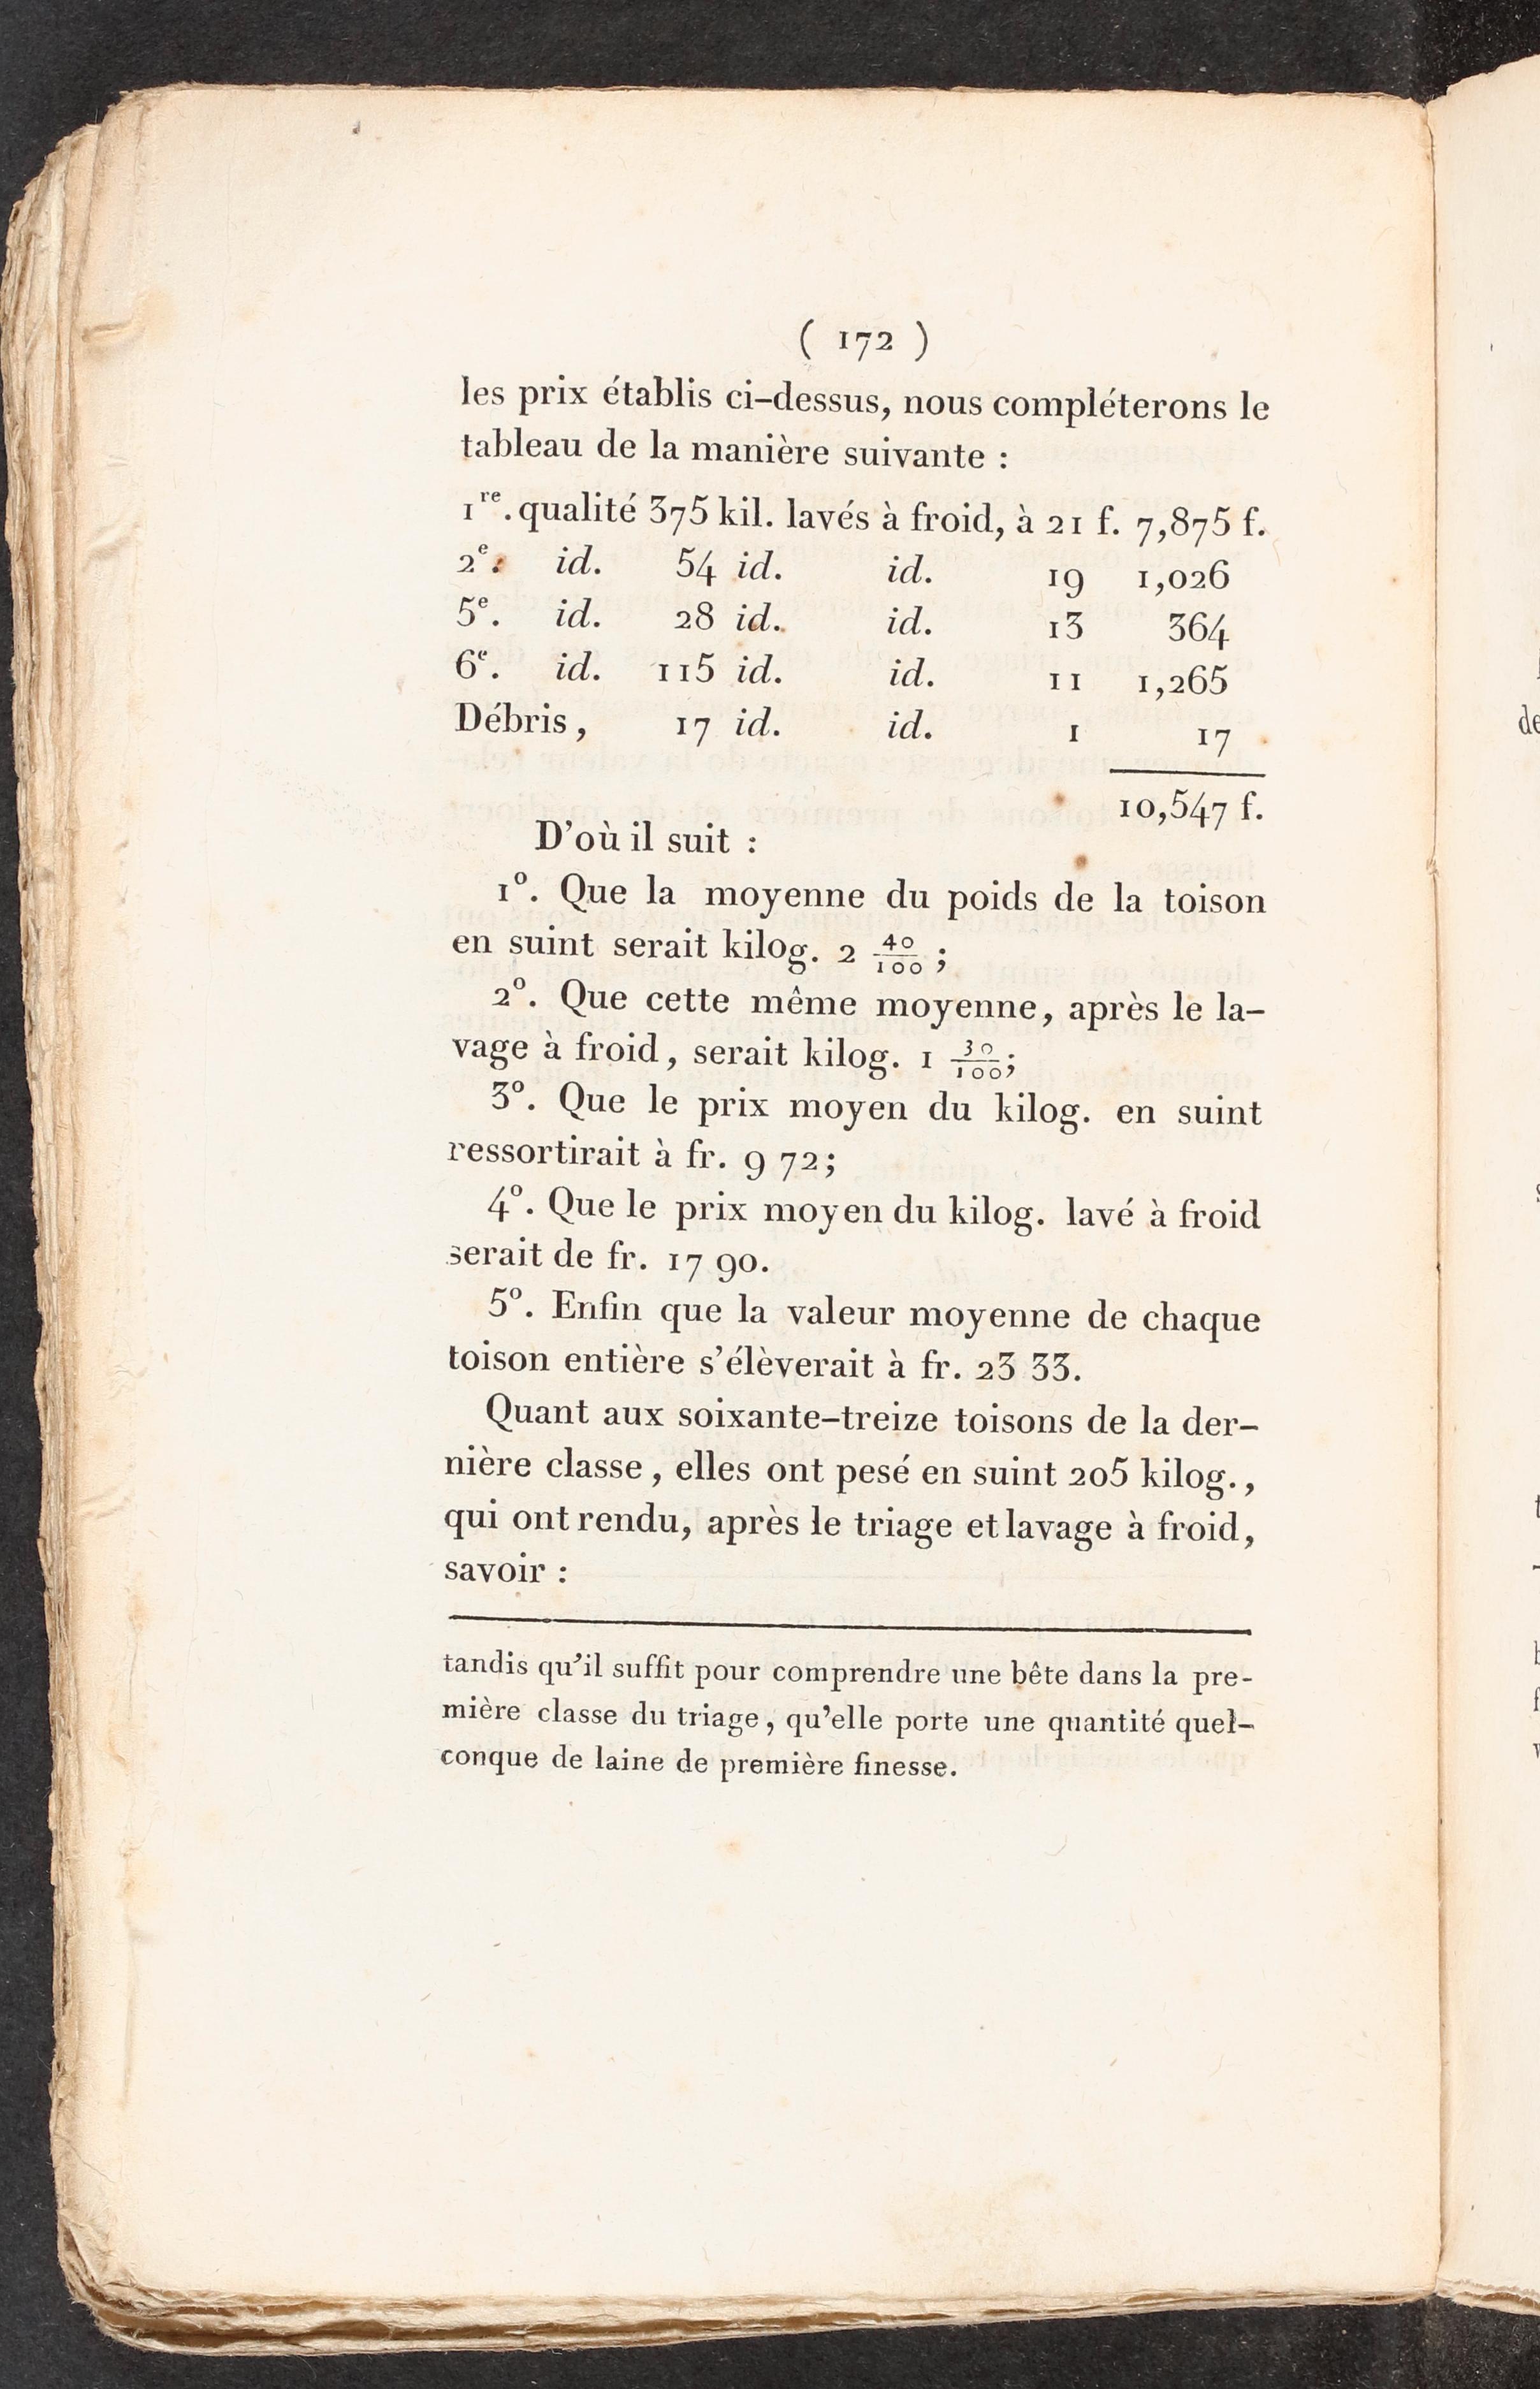 ( 172 )
les prix établis ci-dessus, nous compléterons le
tableau de la manière suivante :
1re. qualité 375 kil. lavés à froid, à 21 f. 7,875 f.
2e. id. 54 id. id. 19 1,026
5e. id. 28 id. id. 13 364
6e. id. 115 id. id. 11 1,265
Débris, 17 id. id. 1 17
10,547 f.
D'où il suit :
1º. Que la moyenne du poids de la toison
en suint serait kilog. 2 40/100 ;
2º. Que cette même moyenne, après le la-
vage à froid, serait kilog. 1 30/100;
3º. Que le prix moyen du kilog. en suint
ressortirait à fr. 9 72;
4º. Que le prix moyen du kilog. lavé à froid
serait de fr. 17 90.
5º. Enfin que la valeur moyenne de chaque
toison entière s'élèverait à fr. 23 33.
Quant aux soixante-treize toisons de la der-
nière classe, elles ont pesé en suint 205 kilog.,
qui ont rendu, après le triage et lavage à froid,
savoir :
tandis qu'il suffit pour comprendre une bête dans la pre-
mière classe du triage, qu'elle porte une quantité quel-
conque de laine de première finesse.
de